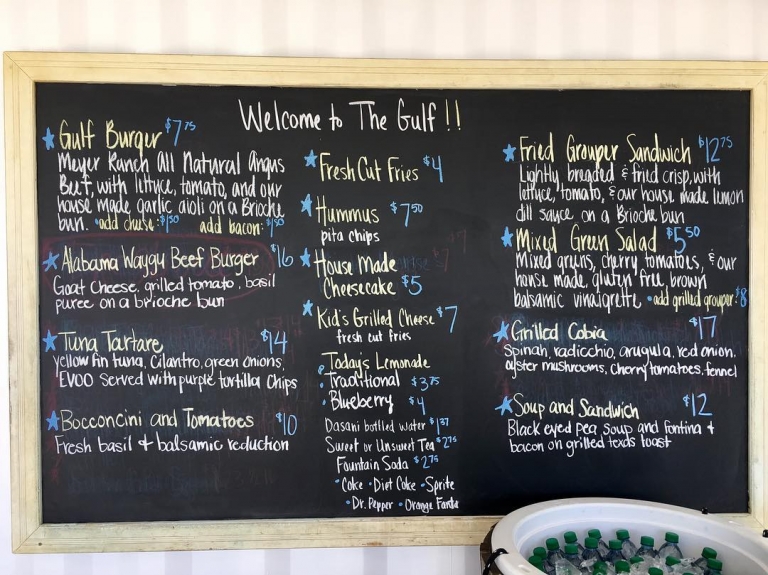 Welcome to The Gulf !!
Gulf Burger $7.75
Meyer Ranch All Natural Angus
Beef, with lettuce, tomato, and our
house made garlic aioli on a Brioche
bun. •add cheese: $1.50 add bacon: $1.50
Alabama Waygu Beef Burger $16
Goat Cheese, grilled tomato, basil
puree on a brioche bun
Tuna Tartare $14
yellow fin tuna, Cilantro, green onions,
EVOO served with purple tortilla chips
Bocconcini and Tomatoes $10
Fresh basil & balsamic reduction
Fresh Cut Fries $4
Hummus $7.50
pita chips
House Made
Cheesecake $5
Kid's Grilled Cheese $7
fresh cut fries
Today's Lemonade
• Traditional $3.75
• Blueberry $4
Dasani bottled water $1.37
Sweet or Unsweet Tea $2.75
Fountain Soda $2.75
• Coke • Diet Coke • Sprite
• Dr. Pepper • Orange Fanta
Fried Grouper Sandwich $12.75
Lightly breaded & fried crisp, with
lettuce, tomato, & our house made lemon
dill sauce on a Brioche bun
Mixed Green Salad $5.50
Mixed greens, cherry tomatoes, & our
house made, gluten free brown
balsamic vinaigrette •add grilled grouper: $8
Grilled Cobia $17
Spinah, radicchio, arugula, red onion,
oyster mushrooms, cherry tomatoes, fennel
Soup and Sandwich $12
Black eyed pea soup and fontina &
bacon on grilled texas toast